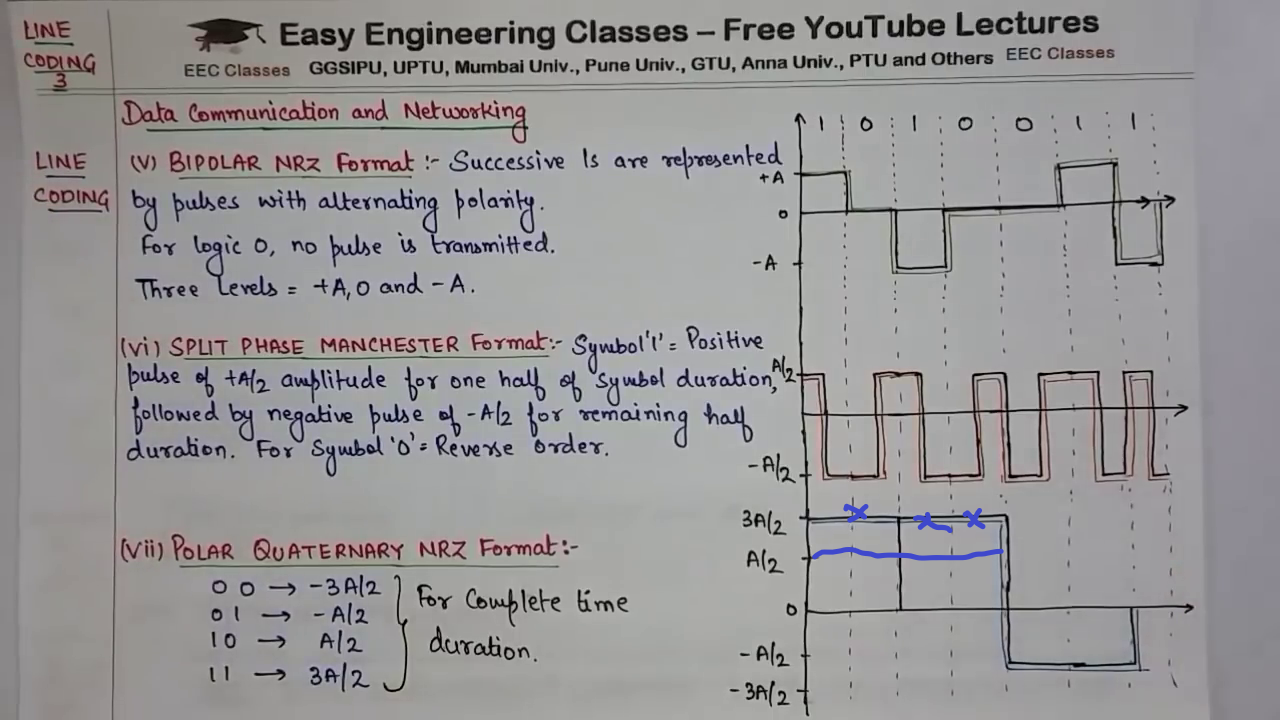 LINE
CODING
3
Easy Engineering Classes – Free YouTube Lectures
EEC Classes GGSIPU, UPTU, Mumbai Univ., Pune Univ., GTU, Anna Univ., PTU and Others EEC Classes
Data Communication and Networking
LINE
CODING
(V) BIPOLAR NRZ Format :- Successive 1s are represented
by pulses with alternating polarity.
For logic 0, no pulse is transmitted.
Three Levels = +A, 0 and -A.
1 0 1 0 0 1 1
+A
0
-A
(Vi) SPLIT PHASE MANCHESTER Format:- Symbol '1' = Positive
pulse of +A/2 amplitude for one half of symbol duration,
followed by negative pulse of -A/2 for remaining half
duration. For Symbol '0' = Reverse order.
A/2
-A/2
(Vii) POLAR QUATERNARY NRZ Format:-
00 → -3A/2
01 → -A/2
10 → A/2
11 → 3A/2
For Complete time
duration.
3A/2
A/2
0
-A/2
-3A/2